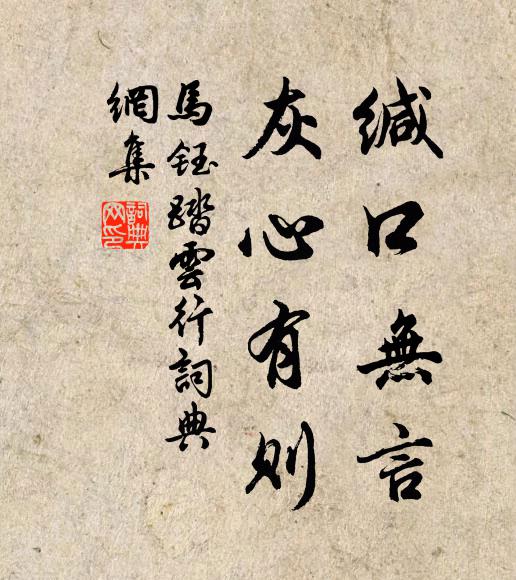 缄口無言
灰心有則
馬鈺踏雲行詞典
網集
詞典
网印